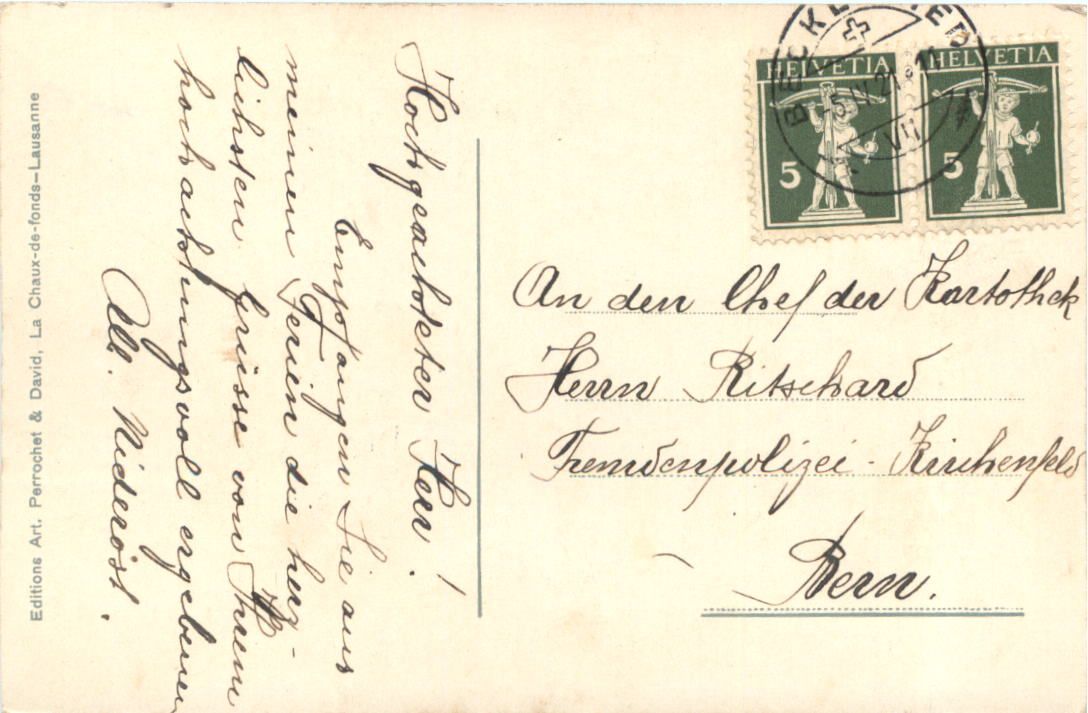 Hochgeachteter Herr!
Empfangen Sie aus
meinen Ferien die herz-
lichsten Grüsse von Ihrem
hochachtungsvoll ergebenen
Ad. Niederöst.
Editions Art. Perrochet & David, La Chaux-de-fonds–Lausanne
HELVETIA
5
HELVETIA
5
BECKENRIED
VII
An den Chef der Kartothek
Herrn Ritschard
Fremdenpolizei - Kirchenfeld
Bern.